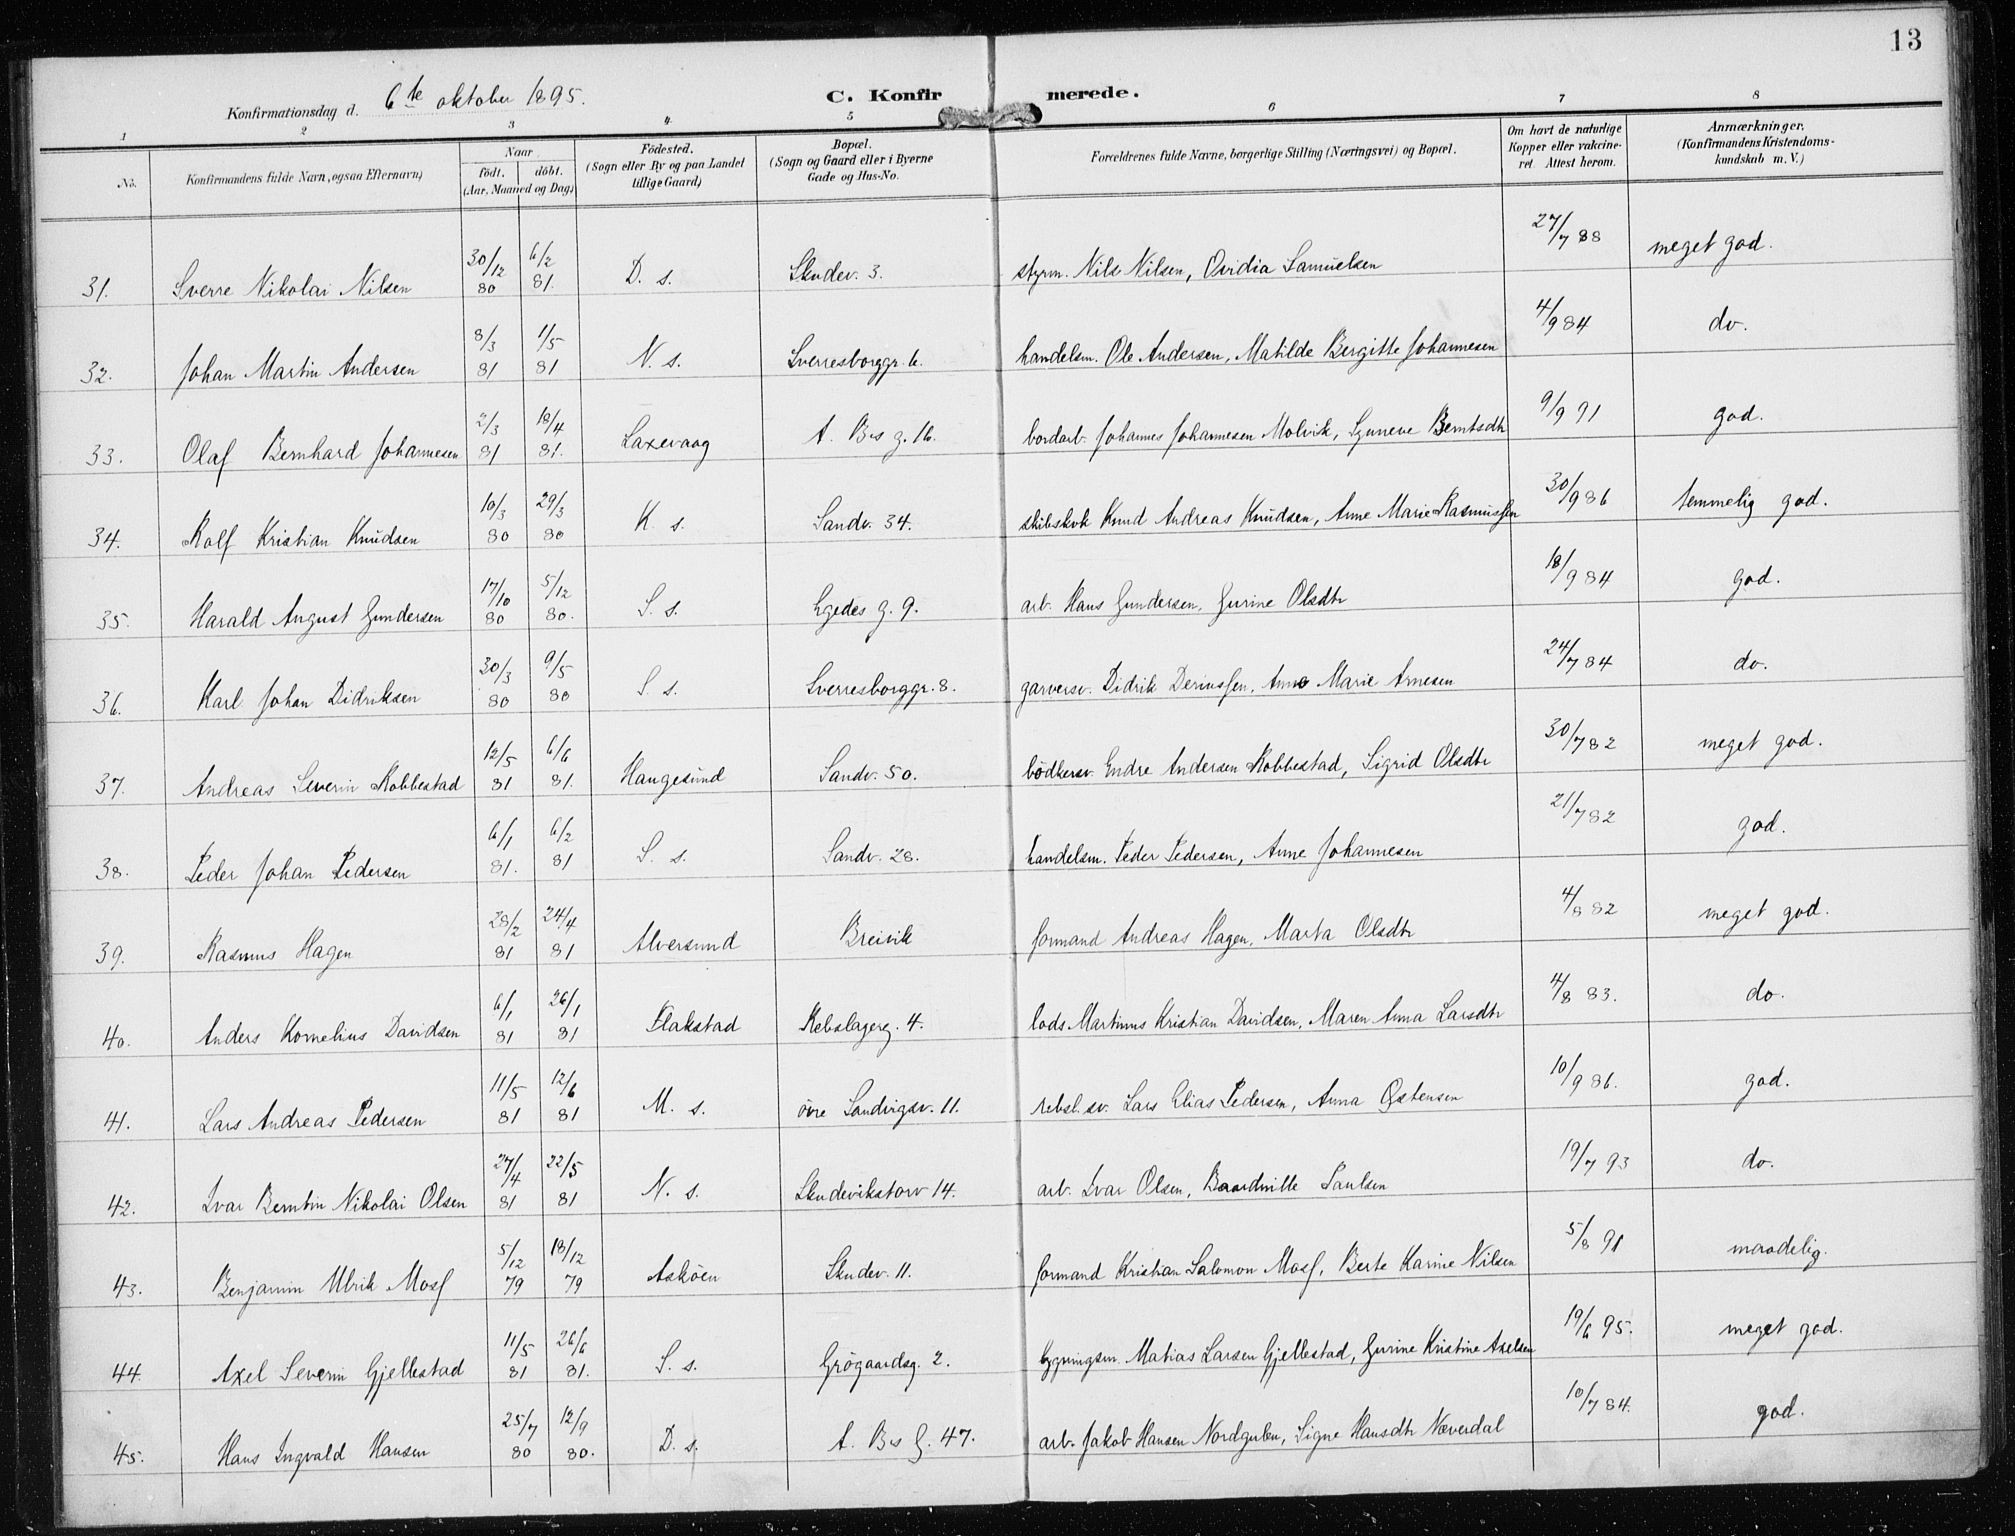 13
Konfirmationsdag d. 6te oktober 1895. C. Konfirmerede.
1 2 3 4 5 6 7 8
No. Konfirmandens fulde Navn, ogsaa Efternavn) Naar født. døbt. (Aar, Maaned og Dag) Fødested. (Sogn eller By og paa Landet tillige Gaard) Bopæl. (Sogn og Gaard eller i Byerne Gade og Hus-No. Forældrenes fulde Navne, borgerlige Stilling (Næringsvei) og Bopæl. Om havt de naturlige Kopper eller vakcineret. Attest herom. Anmærkninger. (Konfirmandens Kristendomskundskab m. V.)
31. Sverre Nikolai Nilsen 30/12 80 6/2 81. D. s. Skudev. 3. styrm. Nils Nilsen, Ovidia Samuelsen 27/7 88 meget god.
32. Johan Martin Andersen 8/3 81 1/5 81 N. s. Sverresborggr. 6. handelsm. Ole Andersen, Matilde Bergitte Johannesen 4/9 84 do.
33. Olaf Bernhard Johannesen 2/3 81 18/4 81. Laxevaag A. Bs g. 16. bordarb. Johannes Johannesen Molvik, Synneve Berntsdtr 9/9 91 god.
34. Rolf Kristian Knudsen 10/3 80 29/3 80 K. s. Sandv. 34. skibskok Knud Andreas Knudsen, Anne Marie Rasmussen 30/9 86 temmelig god.
35. Harald August Gundersen 17/10 80 5/12 80. S. s. Egedes g. 9. arb. Hans Gundersen, Gurine Olsdtr 18/9 84 god.
36. Karl Johan Didriksen 30/3 80 9/5 80 S. s. Sverresborggr. 8. garversv. Didrik Deriussen, Anne Marie Arnesen 24/7 84 do.
37. Andreas Severin Robbestad 12/5 81 6/6 81. Haugesund Sandv. 50. bødkersv. Endre Andersen Robbestad, Sigrid Olsdtr 30/7 82 meget god.
38. Peder Johan Pedersen 6/1 81. 6/2 81 S. s. Sandv. 28. handelsm. Peder Pedersen, Anne Johannesen 21/7 82 god.
39. Rasmus Hagen 28/2 81 24/4 81 Alversund Breivik formand Andreas Hagen, Marta Olsdtr 4/8 82 meget god.
40. Anders Kornelius Davidsen 6/1 81 26/1 81 Flakstad Rebslagerg. 4. lods Martinus Kristian Davidsen, Maren Anna Larsdtr 4/8 83. do.
41. Lars Andreas Pedersen 11/5 81 12/6 81 M. s. øvre Sandvigsv. 11. rebsl.sv. Lars Elias Pedersen, Anna Østensen 10/9 86. god.
42. Ivar Berntin Nikolai Olsen 27/4 81 22/5 81 N. s. Skudevikstorv 14. arb. Ivar Olsen, Baardnille Paulsen 19/7 93 do.
43. Benjamin Ulrik Moss 5/12 79 18/12 79 Askøen Skudev. 11. formand Kristian Salomon Moss, Berte Karine Nilsen 5/8 91 maadelig.
44. Axel Severin Gjellestad 11/5 81 26/6 81. S. s. Grøgaardsg. 2. bygningsm. Matias Larsen Gjellestad, Gurine Kristine Axelsen 19/6 95. meget god.
45. Hans Ingvald Hansen 25/7 80 12/9 80. D. s. A. Bs G. 47. arb. Jakob Hansen Nordgulen, Signe Hansdtr Næverdal 10/7 84. god.